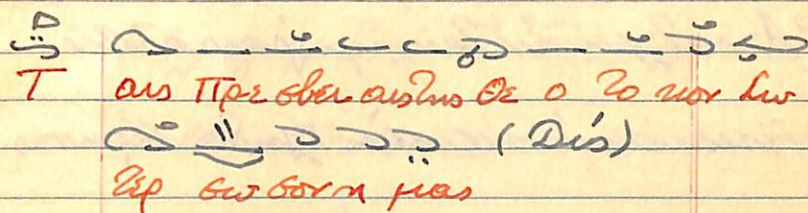 Ταις Πρεσβειαιςτης Θε ο το κον Σω
τερ σωσον η μας
(Δίς)